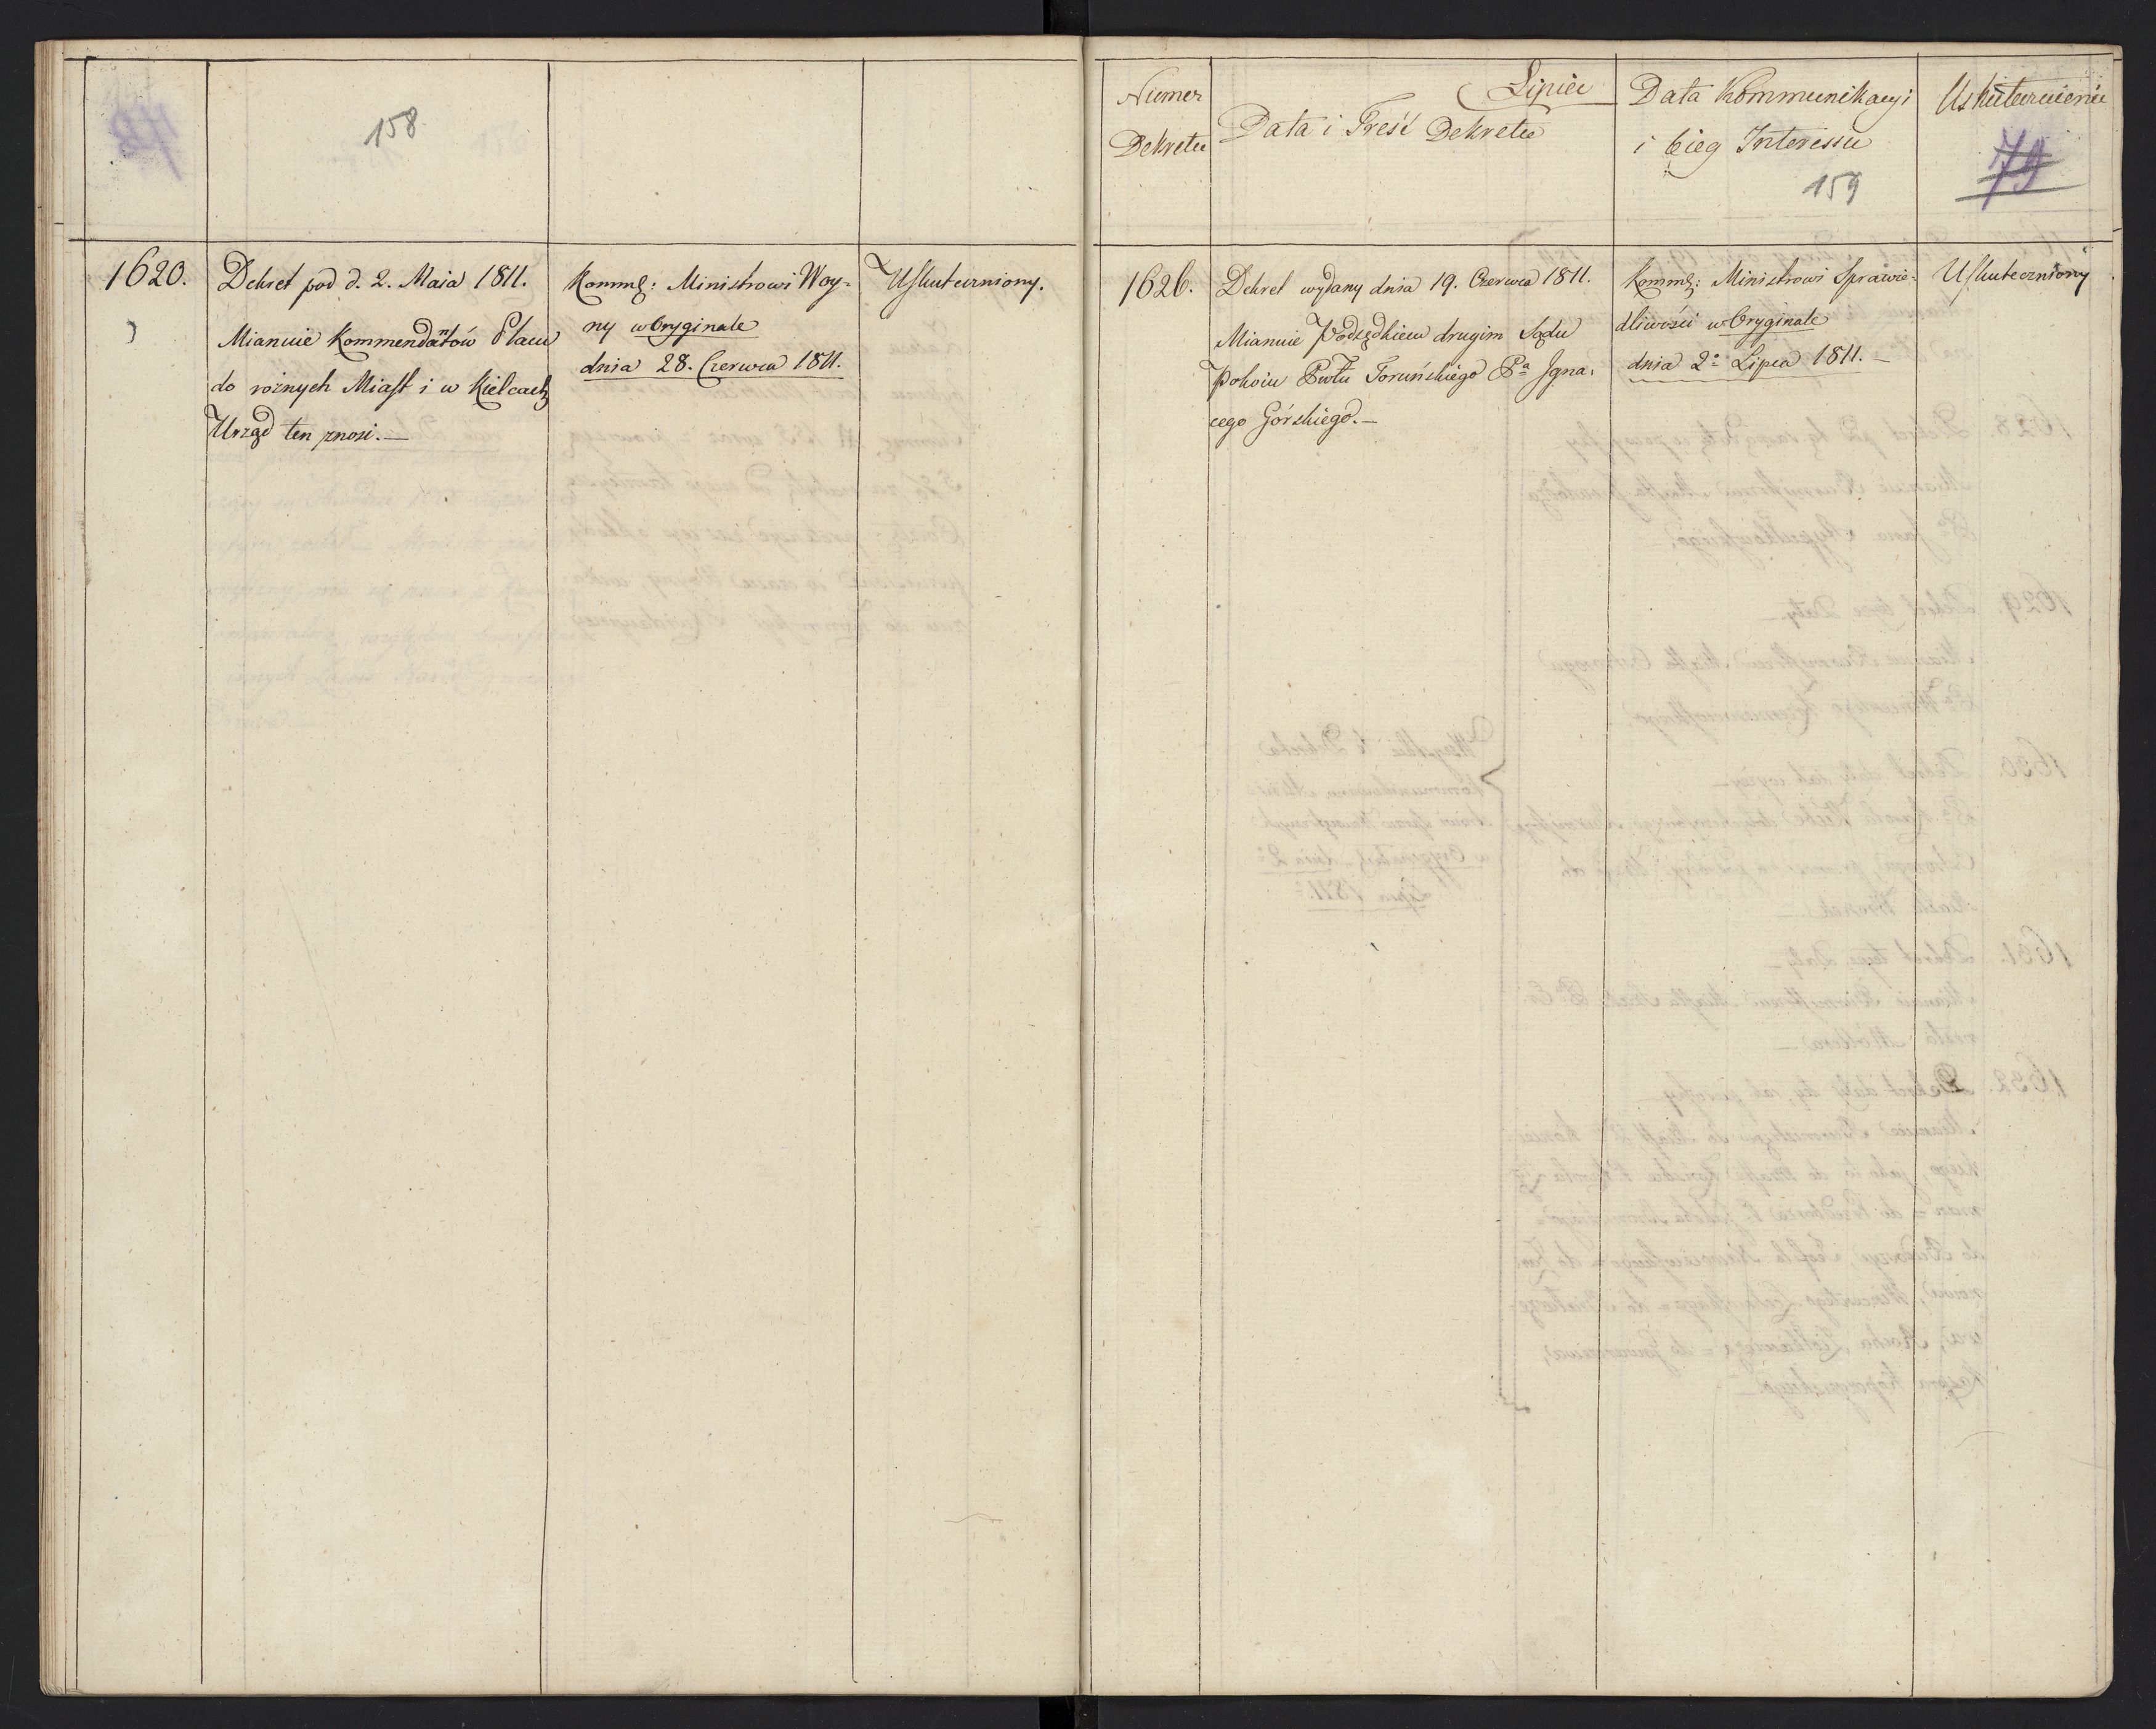 158
1620.
Dekret pod d. 2. Maia 1811.
Mianuie Kommendantów Placu
do roznych Miast i w Kielcach
Urząd ten znosi.—
Kommk: Ministrowi Woy-
ny w Oryginale
dnia 28. Czerwca 1811.
Uskuteczniony.
Numer
Dekretu
Lipiec
Data i Treść Dekretu
Data Kommunikacyi
i bieg Interessu
159
Uskutecznienie
79
1626.
Dekret wydany dnia 19. Czerwca 1811.
Mianuie Podsędkiem drugim Sądu
Pokoiu Pwtu Toruńskiego Pa Igna-
cego Górskiego.—
Kommk: Ministrowi Sprawie-
dliwości w Oryginale
dnia 2o Lipca 1811.—
Uskuteczniony